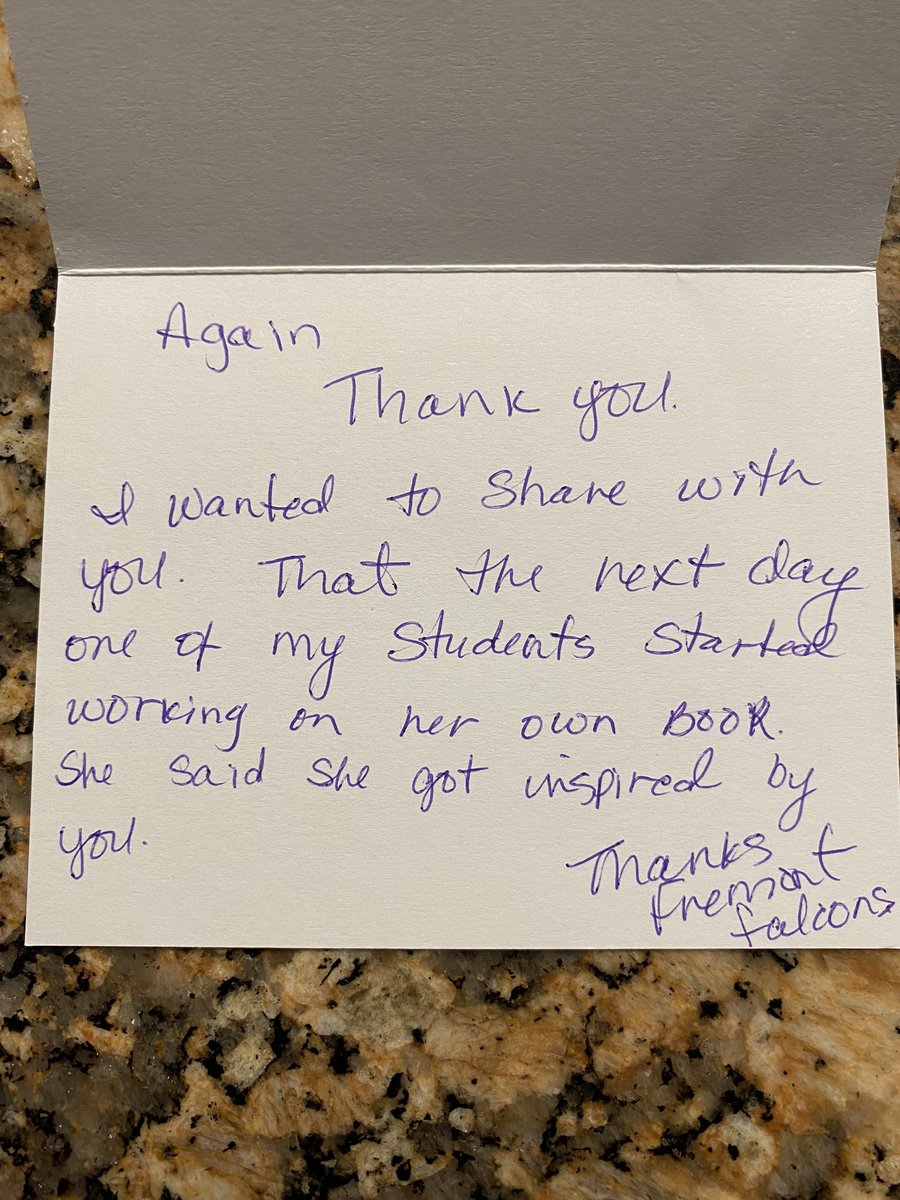 Again
Thank you.
I wanted to share with
you. That the next day
one of my Students Started
working on her own BOOK.
She said she got inspired by
you.
Thanks
Fremont
falcons